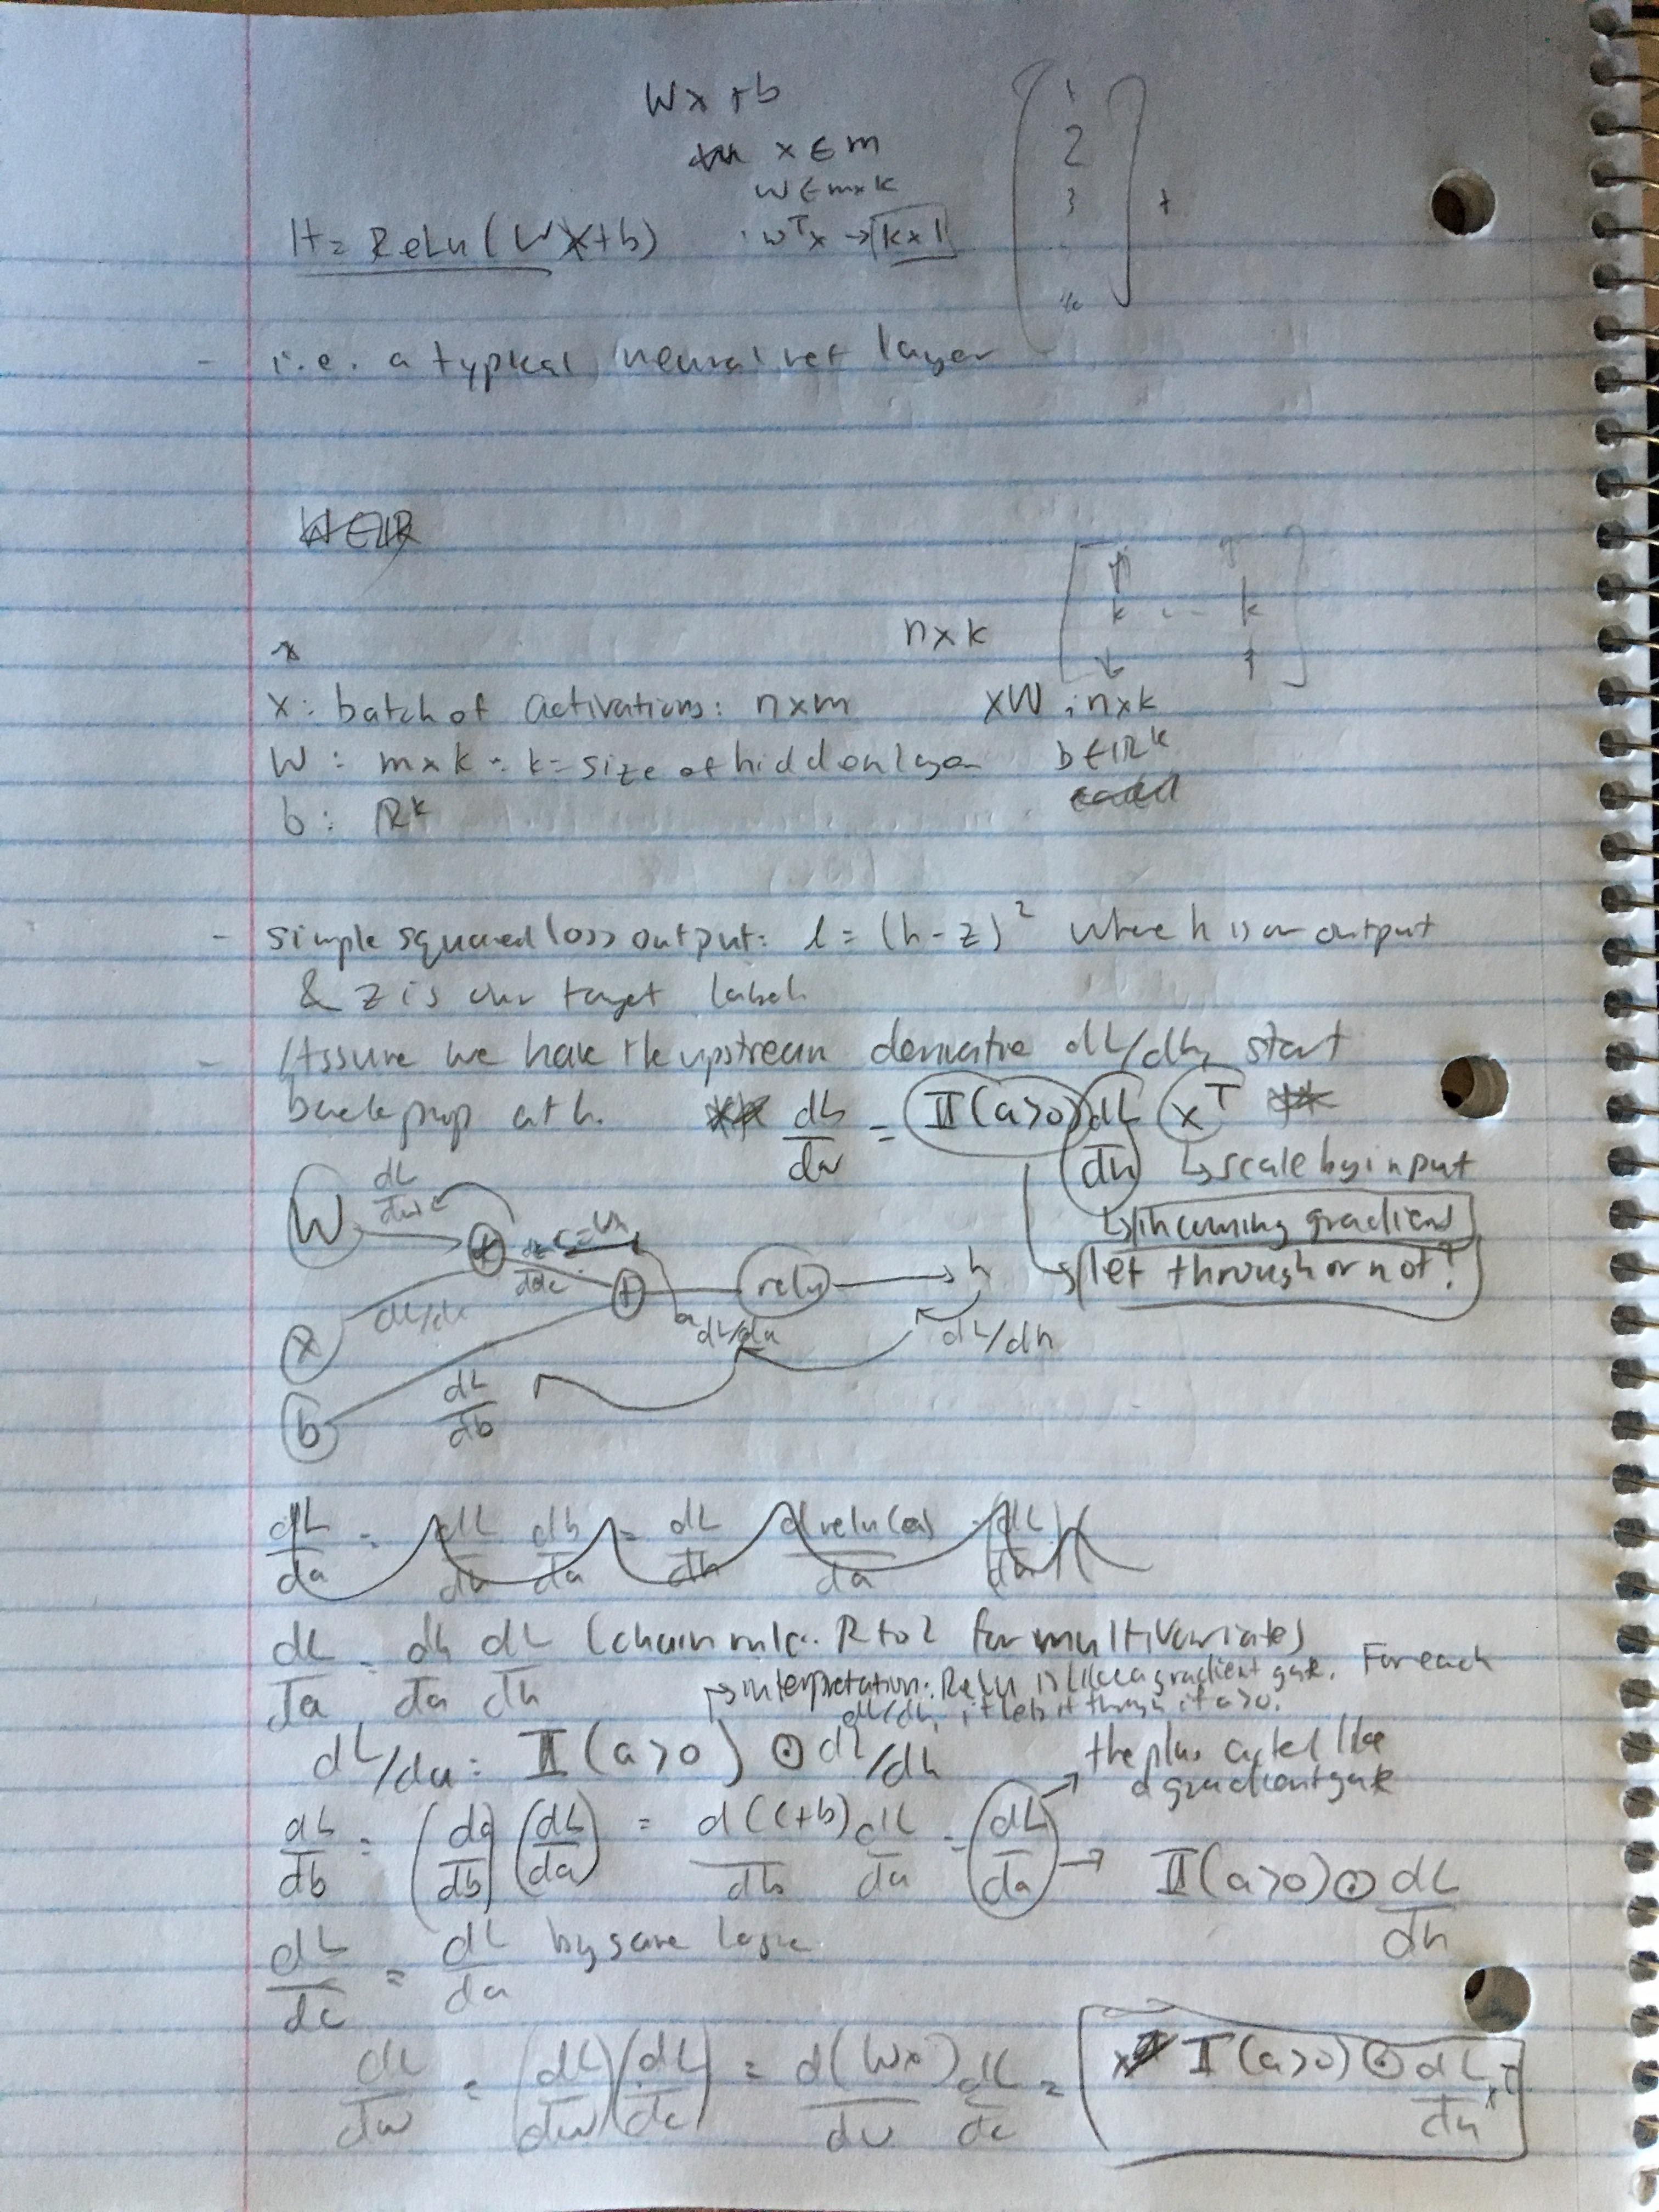 Wx + b
x ∈ m
W ∈ m x k
H = ReLu (Wx+b) : w^T x → k x 1
1
2
3
+
- i.e. a typical neural net layer
W ∈ IR
n x k
k . . - k
x
x : batch of activations : n x m xW : n x k
W : m x k - k = size of hidden layer b ∈ IR^k
b : IR^k
- simple squared loss output: l = (h - z)^2 where h is our output
& z is our target label
- Assume we have the upstream derivative dL/dh, start
backprop at h. ** dL/dw = II(a>0) dL/dh x^T **
↳ scale by input
↳ incoming gradient
↳ let through or not!
W dL/dw
+ relu → h
x dL/dc dL/da dL/dh
b dL/db
dL/da = dL/dh dh/da = dL/dh d relu(a)/da = (dL/dh)(
dL/da = dh/da dL/dh (chain rule: R to L for multivariate)
→ interpretation: Relu is like a gradient gate. For each
dL/dh, it lets it through if a>0.
dL/da : II(a>0) ⊙ dL/dh
the plus acted like
a gradient gate
dL/db = (da/db)(dL/da) = d(c+b)/db dL/da = dL/da → II(a>0) ⊙ dL/dh
dL/dc = dL/da by same logic
dL/dw = (dL/dw)(dL/dc) = d(Wx)/dw dL/dc = II(a>0) ⊙ dL/dh x^T